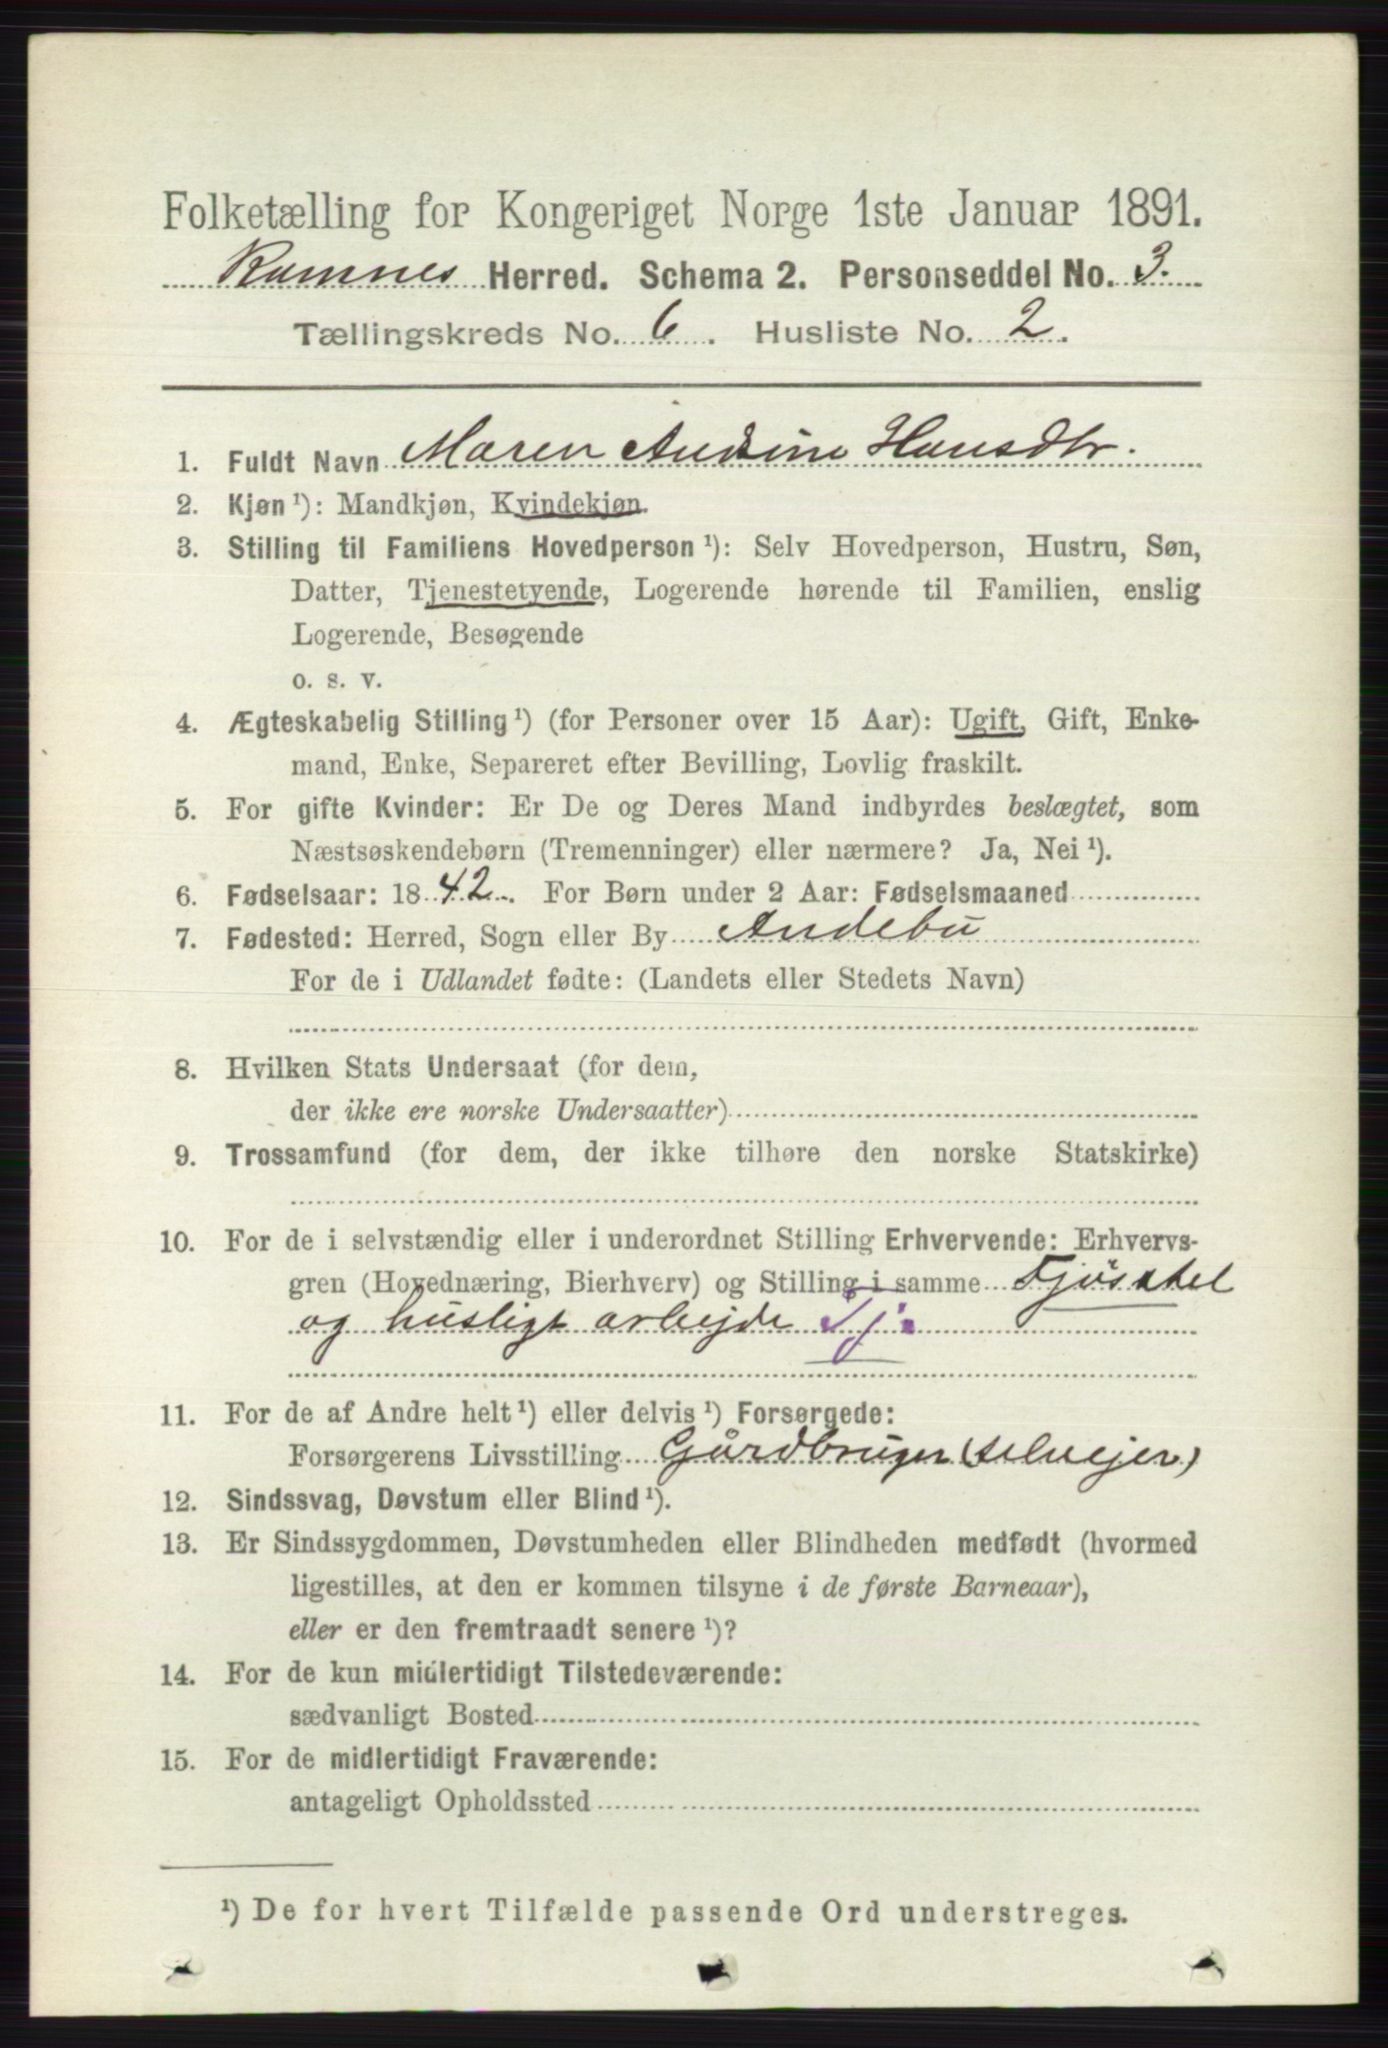 Folketælling for Kongeriget Norge 1ste Januar 1891.
Ramnes Herred. Schema 2. Personseddel No. 3.
Tællingskreds No. 6. Husliste No. 2.
1. Fuldt Navn Maren Andrine Hansdtr.
2. Kjøn ¹): Mandkjøn, Kvindekjøn.
3. Stilling til Familiens Hovedperson ¹): Selv Hovedperson, Hustru, Søn,
Datter, Tjenestetyende, Logerende hørende til Familien, enslig
Logerende, Besøgende
o. s. v.
4. Ægteskabelig Stilling ¹) (for Personer over 15 Aar): Ugift, Gift, Enke-
mand, Enke, Separeret efter Bevilling, Lovlig fraskilt.
5. For gifte Kvinder: Er De og Deres Mand indbyrdes beslægtet, som
Næstsøskendebørn (Tremenninger) eller nærmere? Ja, Nei ¹).
6. Fødselsaar: 1842. For Børn under 2 Aar: Fødselsmaaned
7. Fødested: Herred, Sogn eller By Andebu
For de i Udlandet fødte: (Landets eller Stedets Navn)
8. Hvilken Stats Undersaat (for dem,
der ikke ere norske Undersaatter)
9. Trossamfund (for dem, der ikke tilhøre den norske Statskirke)
10. For de i selvstændig eller i underordnet Stilling Erhvervende: Erhvervs-
gren (Hovednæring, Bierhverv) og Stilling i samme Fjøsstel
og husligt arbejde Tj.
11. For de af Andre helt ¹) eller delvis ¹) Forsørgede:
Forsørgerens Livsstilling Gårdbruger (selvejer)
12. Sindssvag, Døvstum eller Blind ¹).
13. Er Sindssygdommen, Døvstumheden eller Blindheden medfødt (hvormed
ligestilles, at den er kommen tilsyne i de første Barneaar),
eller er den fremtraadt senere ¹)?
14. For de kun midlertidigt Tilstedeværende:
sædvanligt Bosted
15. For de midlertidigt Fraværende:
antageligt Opholdssted
¹) De for hvert Tilfælde passende Ord understreges.